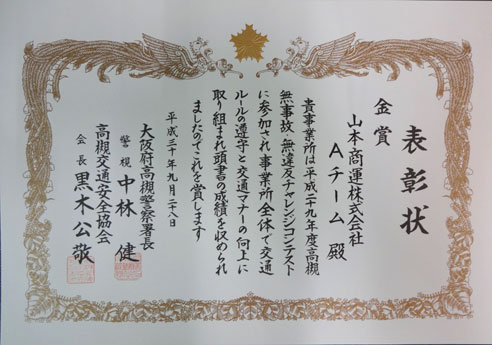 表彰状
金賞
山本商運株式会社
Aチーム 殿
貴事業所は平成二十九年度高槻
無事故・無違反チャレンジコンテスト
に参加され事業所全体で交通
ルールの遵守と交通マナーの向上に
取り組まれ頭書の成績を収められ
ましたのでこれを賞します
平成三十年九月二十八日
大阪府高槻警察署長
警視 中林 健
高槻交通安全協会
会長 黒木公敬